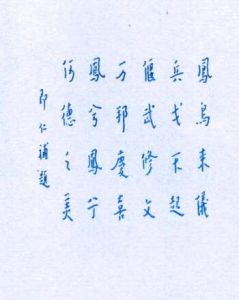 鳳鳥来儀
兵戈不起
偃武修文
万邦慶喜
鳳兮鳳兮
何德之美
即仁禱題